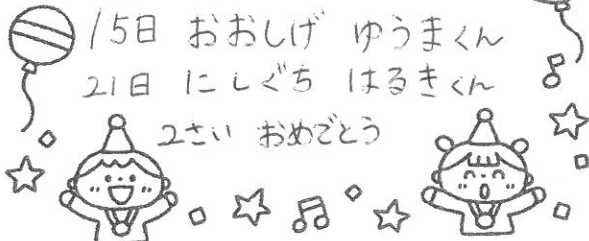 15日 おおしげ ゆうまくん
21日 にしぐち はるきくん
2さい おめでとう